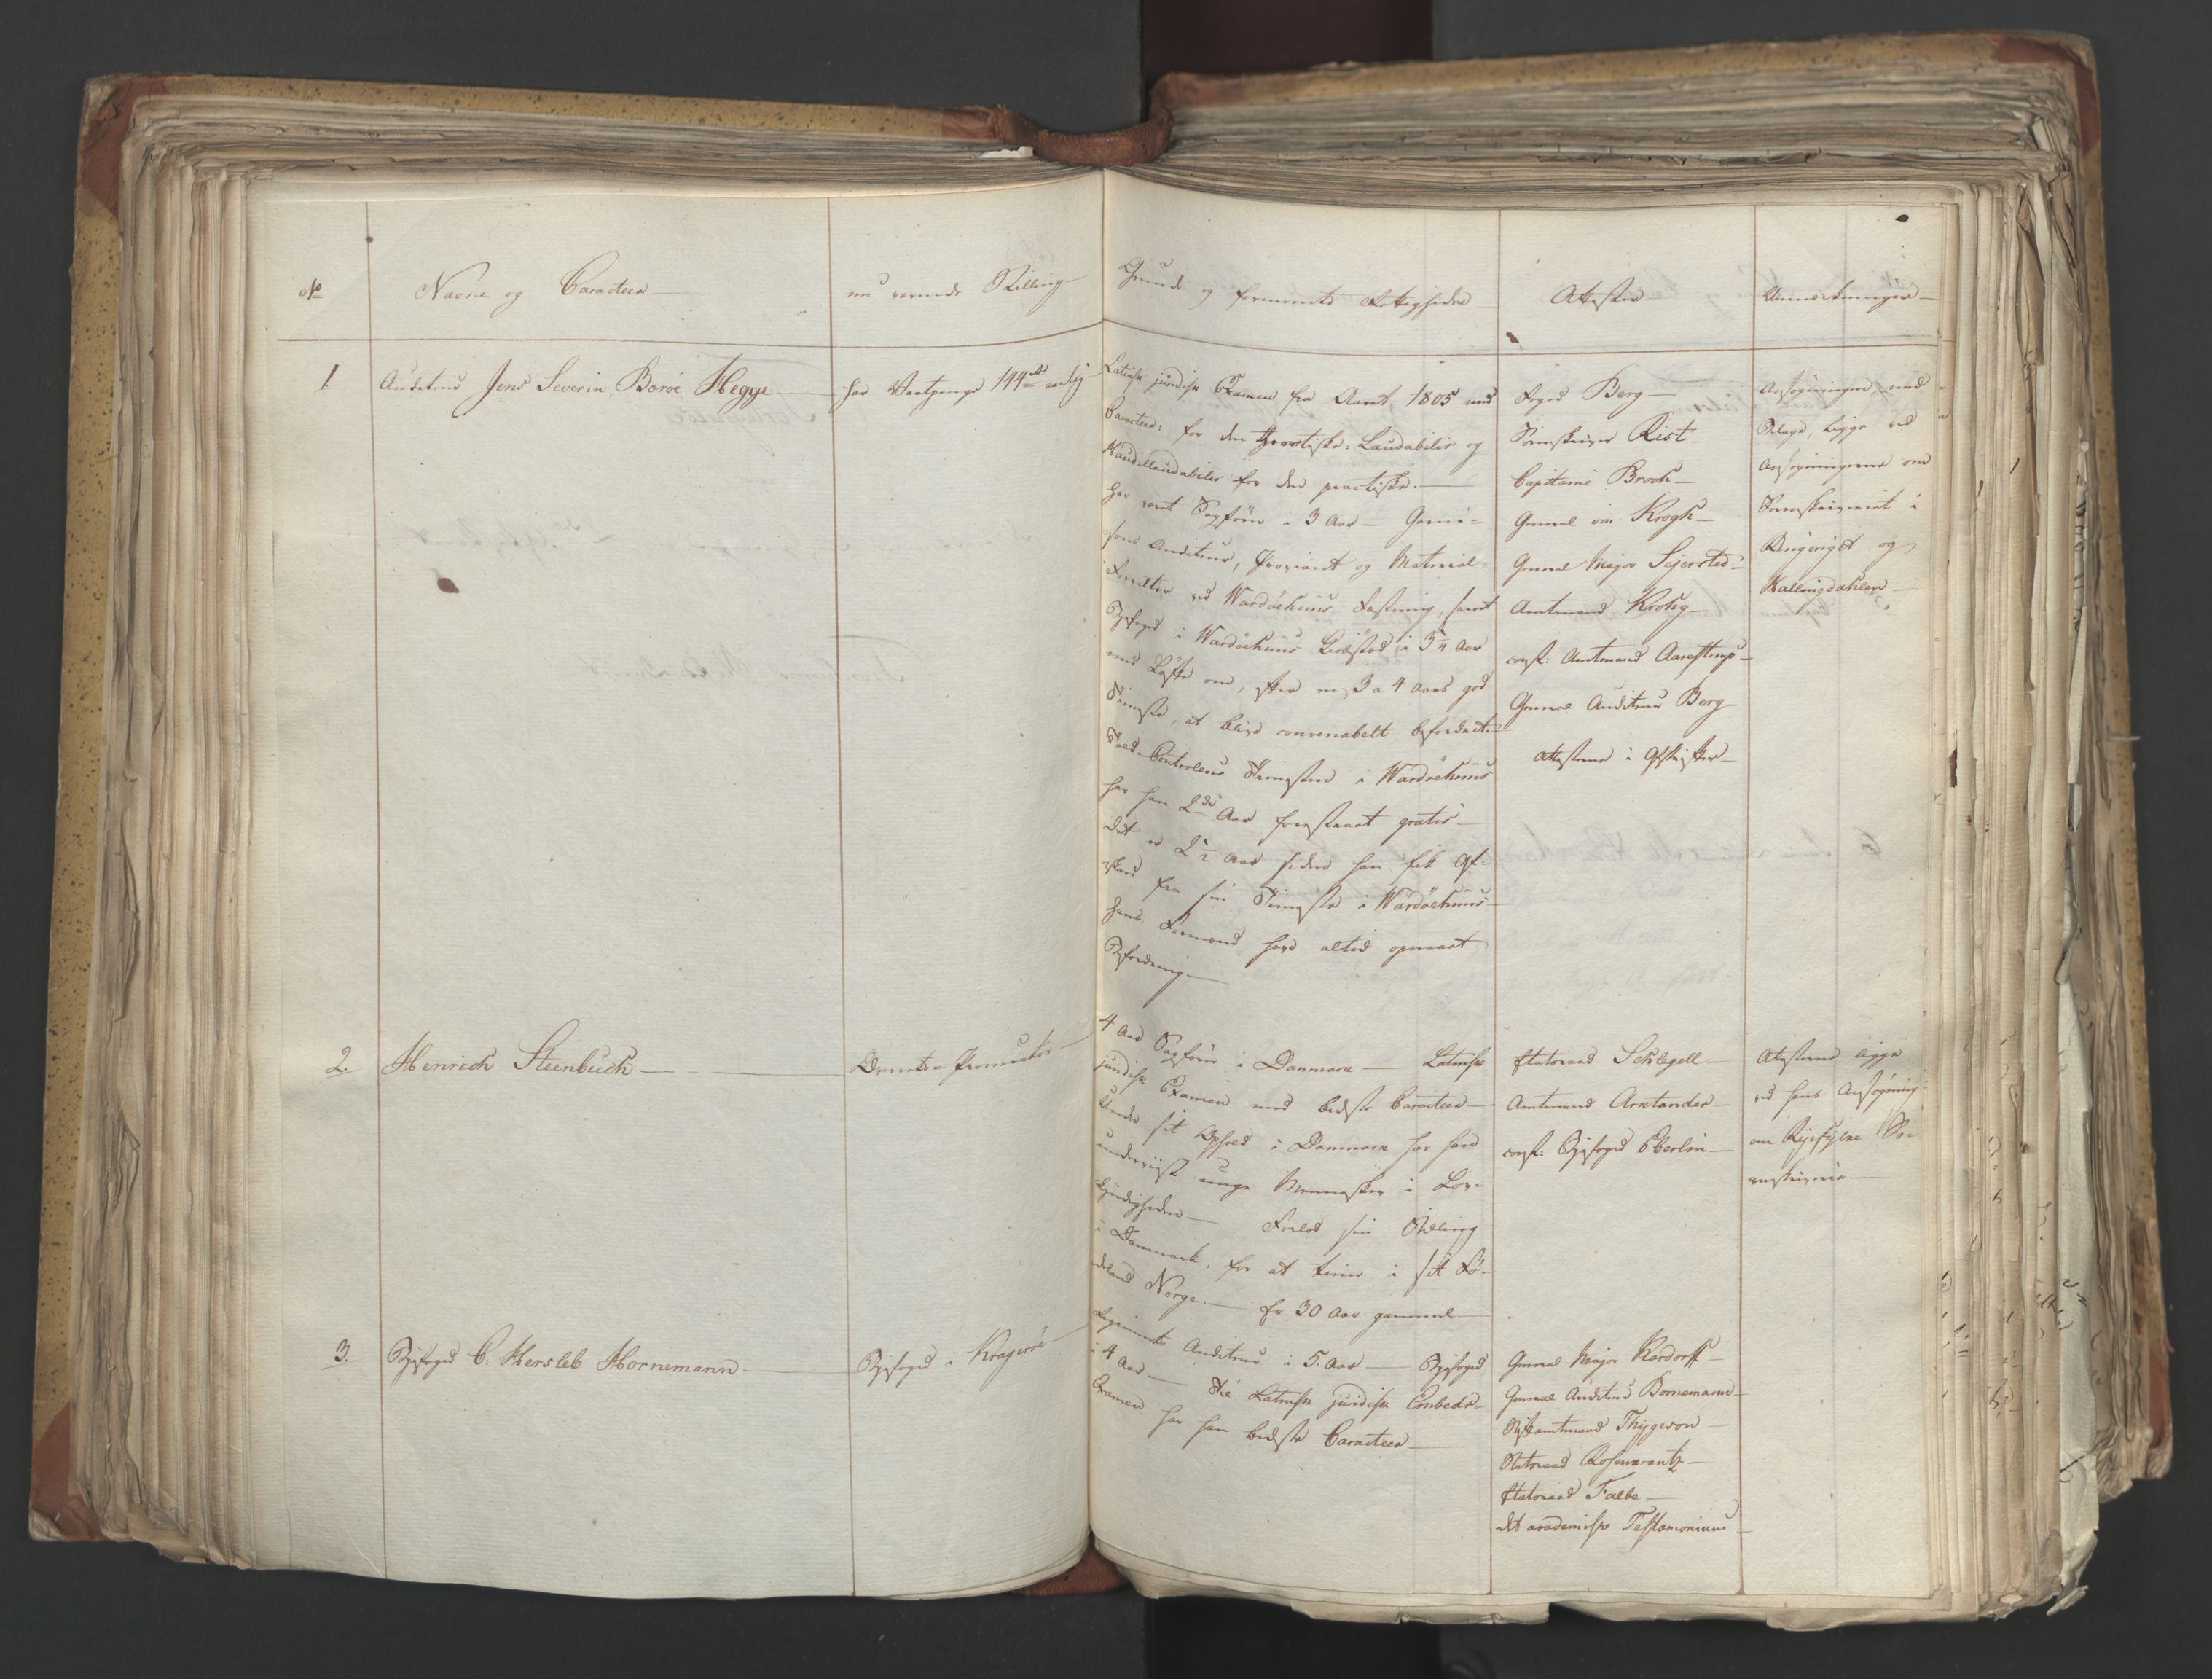 No
Navne og Caracteer
nu værende Stilling
Grunde og formeente Rettigheder
Attester
Anmærkninger
1
Auditeur Jens Severin Boröe Hegge
har Vartpenge 144 rd aarlig
Latinsk juridisk Examen fra Aaret 1805 med
Caracteer: for den theoretiske: Laudabilis og
Haudillaudabilis for den practiske.
har været Sagfører i 3 Aar - Garni-
sons Auditeur, Proviant og Material-
Forvalter ved Wardöehuus Fæstning, samt
Byefoged i Wardöehuus Kiøbstad i 3 1/4 Aar
med Løfte om, efter 3 a 4 Aars god
Tieneste, at blive convenabelt befordret.
Told-Controleur Tienesten i Wardöehuus
har han 2de Aar forestaaet gratis
Det er 2 1/2 Aar siden han fik Af-
skeed fra sin Tieneste i Wardöehuus
hans Formænd have altid opnaaet
Befordring
Foged Berg
Sorenskriver Rist
Capitaine Broch
General von Krogh
General Major Sejersted
Amtmand Krohg
const: Amtmand Aarestrup
General Auditeur Berg
Attesterne i Afskrifter
Ansøgningen med
Bilage, ligge ved
Ansøgningerne om
Sorenskriveriet i
Ringeriget og
Hallingdahlen
2.
Henrich Steenbuch
Overrets-Procurator
4 Aar Sagfører i Danmark - Latinsk
juridisk Examen med bedste Caracteer
Under sit Ophold i Danmark har han
underviist unge Mennesker i Lov-
kyndigheden - Forlod sin Stilling
i Danmark, for at tiene i sit Fø-
deland Norge. - Er 30 Aar gammel
Etatsraad Schlegell
Amtmand Arctander
const: Byefoged Eberlin
Attesterne ligge
ved hans Ansøgning
om Ryefylke So-
renskriverie
3.
Byefoged C. Hersleb Hornemann
Byefoged i Kragerøe
Regiments Auditeur i 5. Aar - Byefoged
i 4 Aar - Til Latinsk juridisk Embeds-
Examen har han bedste Caracteer
General Major Kardorff
General Auditeur Bornemann
Stiftamtmand Thygeson
Statsraad Rosenkrantz
Etatsraad Falbe
det academiske Testamonium